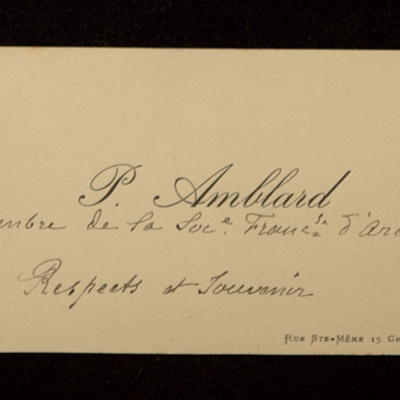 P. Amblard
embre de la Soc.e Franc.se d'Arc
Respects et Souvenir
RUE STE-MÊME 15 CH